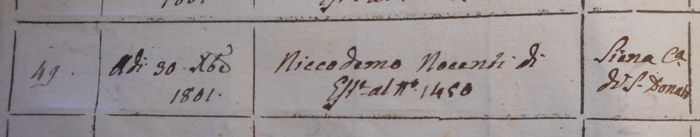 49.
Adi 30. Xbē
1801.
Niccodemo Nocenti di
al N° 1450
Siena Cª
di S. Donato